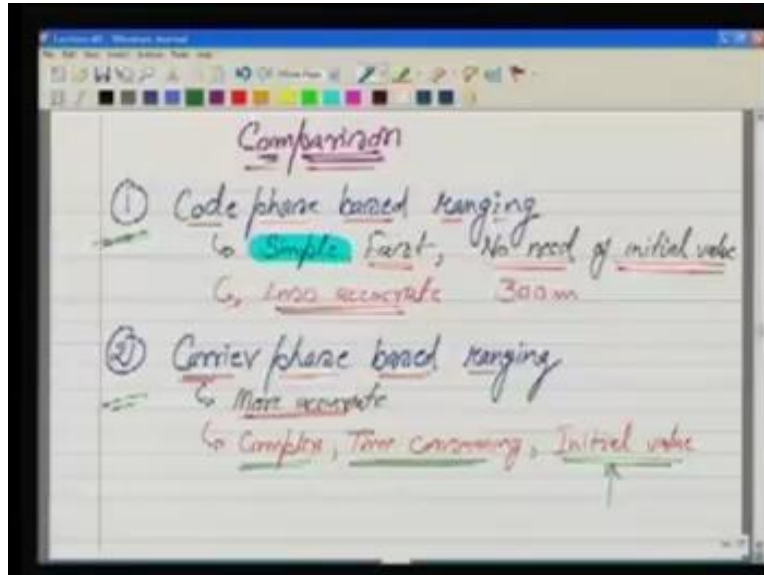 Comparison
① Code phase based ranging
↳ Simple Fast, No need of initial value
↳ Less accurate 300m
② Carrier phase based ranging
↳ More accurate
↳ Complex, Time consuming, Initial value